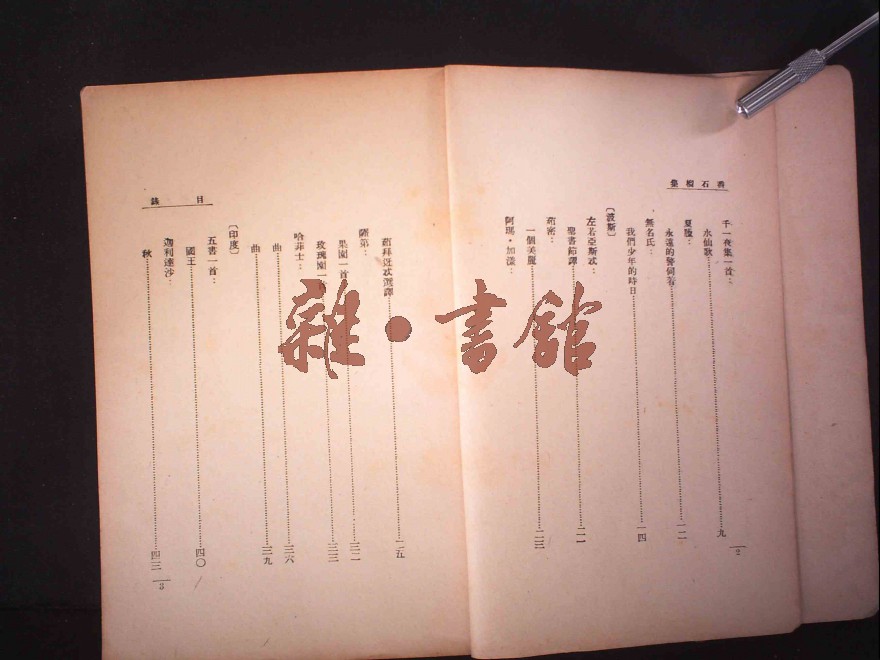 番石榴集
千一夜集一首：
水仙歌……九
夏腊：
永遠的警伺者……一二
無名氏：
我們少年的時日……一四
〔波斯〕
左若亞斯忒：
聖書節譯……二一
茹密：
一個美麗……二三
阿瑪·加漾：
2
目錄
茹拜迓忒選譯……二五
薩第：
果園一首……三二
玫瑰園一首……三三
哈菲士：
曲……三六
曲……三九
〔印度〕
五書一首：
國王……四〇
迦利達沙：
秋……四三
3
雜·書館